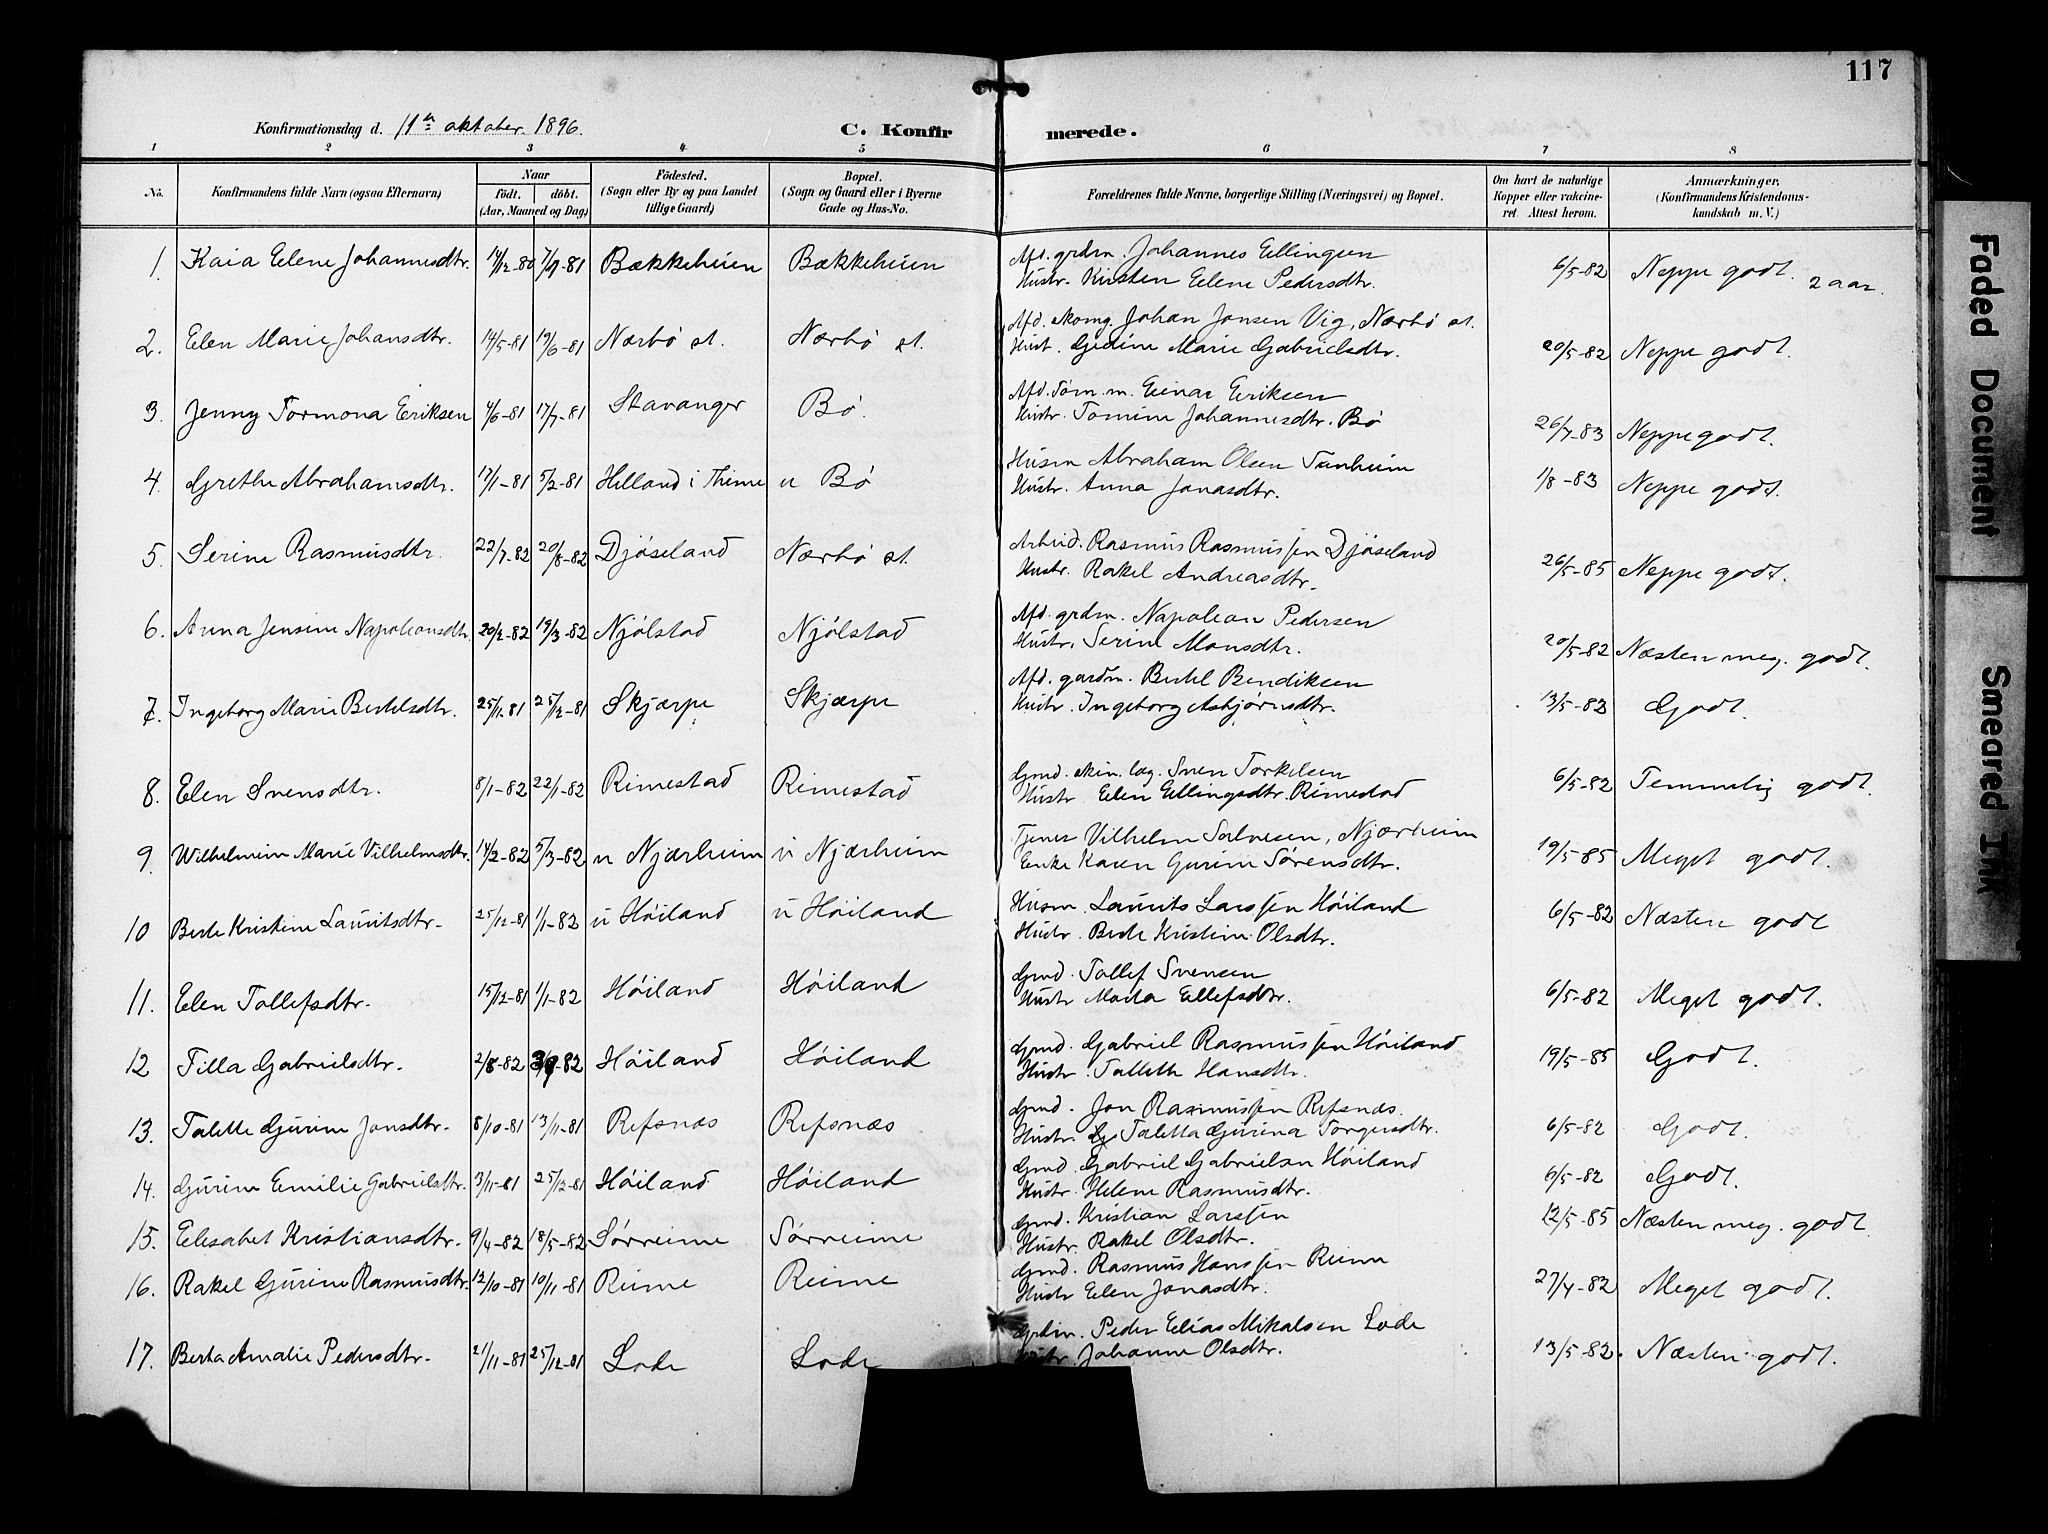 117
Konfirmationsdag d. 11te oktober 1896.
C. Konfir merede.
1 2 3 4 5 6 7 8
No. Konfirmandens fulde Navn (ogsaa Efternavn) Naar födt. döbt. (Aar, Maaned og Dag) Födested. (Sogn eller By og paa Landet tillige Gaard) Bopæl. (Sogn og Gaard eller i Byerne Gade og Hus-No. Forældrenes fulde Navne, borgerlige Stilling (Næringsvei) og Bopæl. Om havt de naturlige Kopper eller vakcineret Attest herom. Anmærkninger. (Konfirmandens Kristendomskundskab m. V.)
1. Kaia Elene Johannesdtr. 17/12-80 7/9-81 Bækkeheien Bækkeheien Afd. grdm. Johannes Ellingsen 6/5-82 Neppe godt. 2 aar.
Hustr. Kirsten Elene Pedersdtr.
2. Elen Marie Johansdtr. 14/5-81 19/6-81 Nærbö st. Nærbö st. Afd. skomg. Johan Jonsen Vig, Nærbö st. 20/5-82 Neppe godt.
Hust. Gidine Marie Gabrielsdtr.
3. Jenny Tormona Eriksen 4/6-81 17/7-81 Stavanger Bö. Afd. Töm. m. Einar Eriksen 26/7-83 Neppe godt.
Hustr. Tomine Johannesdtr. Bö
4. Grethe Abrahamsdtr. 17/1-81 5/2-81 Helland i Thime u Bö Husm Abraham Olsen Tunheim 1/8-83 Neppe godt.
Hustr. Anna Jonasdtr.
5. Serine Rasmusdtr. 22/7-82 20/8-82 Djöseland Nærbö st. Arbeid. Rasmus Rasmussen Djöseland 26/5-85 Neppe godt.
Hustr. Rakel Andreasdtr.
6. Anna Jensine Napoleonsdtr. 20/2-82 19/3-82 Njölstad Njölstad Afd. grdm. Napoleon Pedersen 20/5-82 Næsten meg. godt.
Hustr. Serine Monsdtr.
7. Ingeborg Marie Bertelsdtr. 25/11-81 25/12-81 Skjærpe Skjærpe Afd. gardm. Bertel Bendiksen 13/5-83 Godt.
Hustr. Ingeborg Asbjørnsdtr.
8. Elen Svensdtr. 8/1-82 22/1-82 Rimestad Rimestad Gmd. skin. læg. Sven Torkelsen 6/5-82 Temmelig godt.
Hustr Elen Ellingsdtr. Rimestad
9. Wilhelmine Marie Vilhelmsdtr. 14/2-82 5/3-82 u Njærheim u Njærheim Tjener Vilhelm Salvesen, Njærheim 19/5-85 Meget godt.
Enke Karen Gurine Sörensdtr.
10 Berte Kristine Lauritsdtr. 25/12-81 1/1-82 u Höiland u Höiland Husm. Laurits Larssen Höiland 6/5-82 Næsten godt
Hustr. Berte Kristine Olsdtr.
11. Elen Tollefsdtr. 15/12-81 1/1-82 Höiland Höiland Gmd. Tollef Svensen 6/5-82 Meget godt.
Hustr Marta Ellefsdtr.
12 Tilla Gabrielsdtr. 2/8-82 3/9-82 Höiland Höiland Gmd. Gabriel Rasmussen Höiland 19/5-85 Godt.
Hustr. Tallette Hansdtr.
13. Talette Gurine Jonsdtr. 8/10-81 13/11-81 Refsnæs Refsnæs Gmd. Jon Rasmussen Refsnæs. 6/5-82 Godt.
Hustr. Taletta Gurina Torgersdtr.
14. Gurine Emilie Gabrielsdtr. 3/11-81 25/12-81 Höiland Höiland Gmd. Gabriel Gabrielsen Höiland 6/5-82 Godt.
Hustr. Helene Rasmusdtr.
15. Elisabet Kristiansdtr. 9/4-82 18/5-82 Sörreime Sörreime Gmd. Kristian Larssen 12/5-85 Næsten meg. godt
Hustr. Rakel Olsdtr.
16. Rakel Gurine Rasmusdtr. 12/10-81 10/11-81 Reime Reime Gmd. Rasmus Hanssen Reime 27/4-82 Meget godt.
Hustr Elen Jonasdtr.
17. Berta Amalie Pedersdtr. 21/11-81 25/12-81 Lode Lode Grdm. Peder Elias Mikalsen Lode 13/5-82. Næsten godt.
Hustr. Johanne Olsdtr.
Faded Document
Smeared Ink